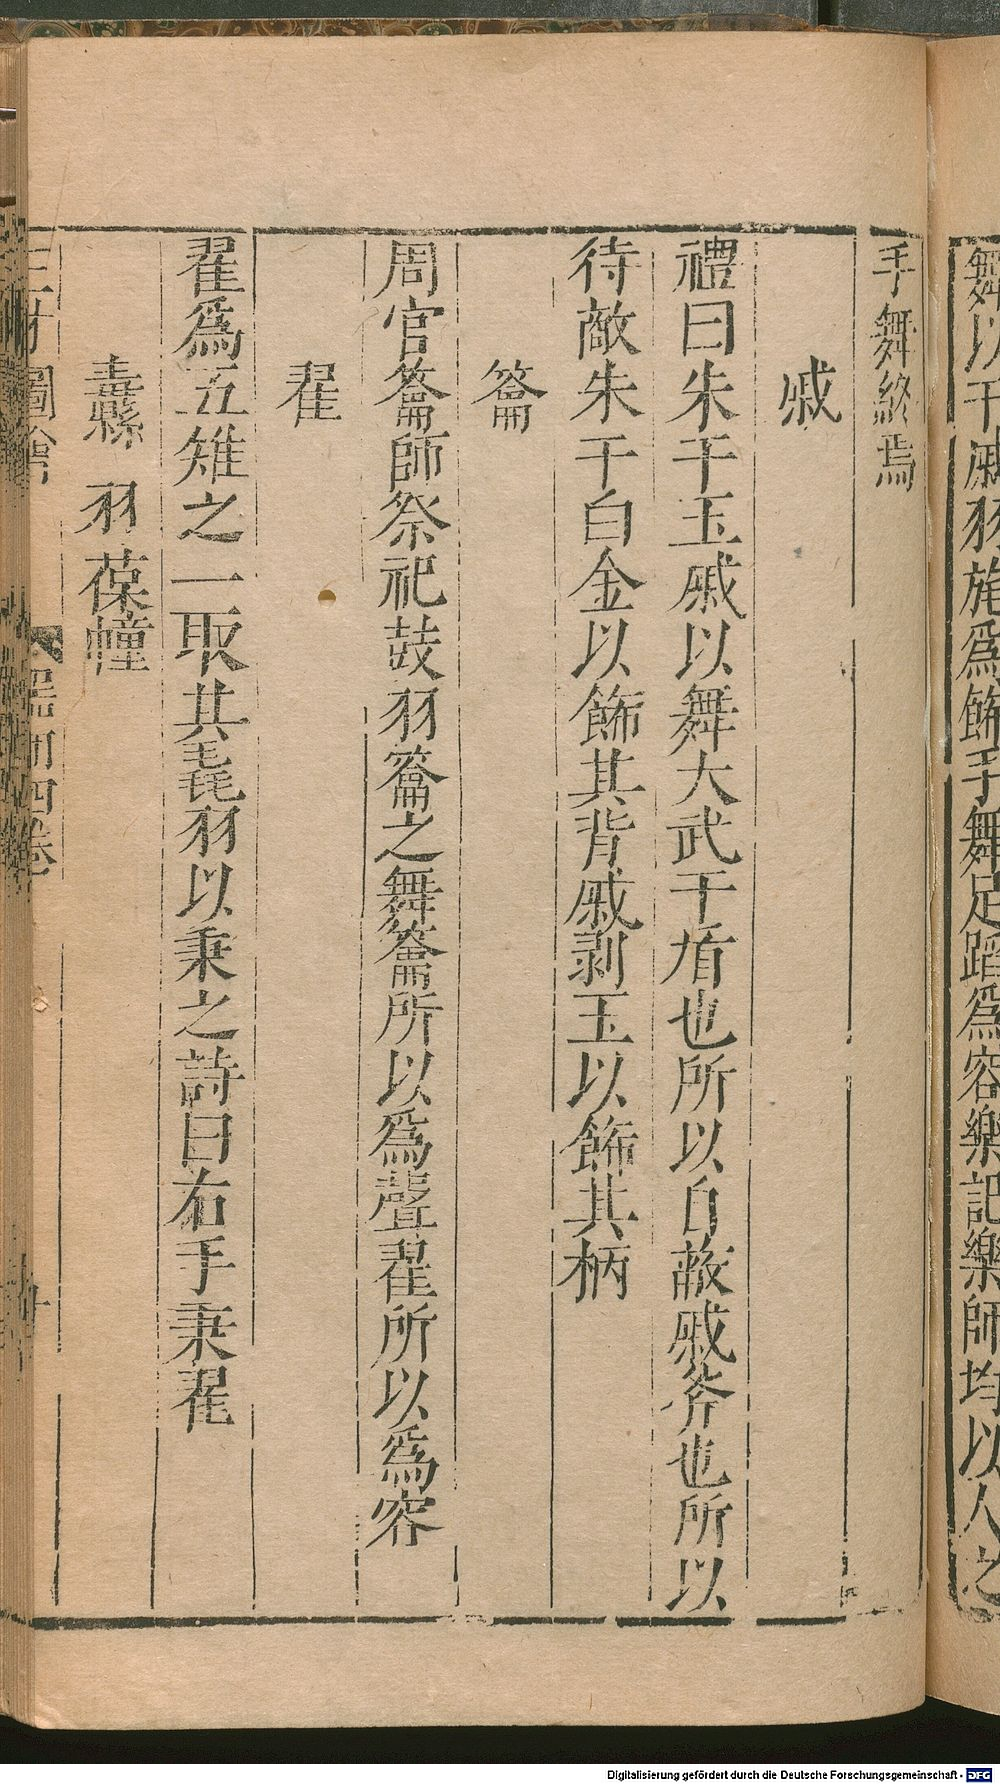 舞以干戚羽旄爲飾手舞足蹈爲容樂記樂師均以人之
手舞終焉
戚
禮曰朱干玉戚以舞大武干盾也所以自蔽戚斧也所以
待敵朱干白金以飾其背戚剥玉以飾其柄
籥
周官籥師祭祀鼓羽籥之舞籥所以爲聲翟所以爲容
翟
翟爲五雉之一取其毳羽以秉之詩曰右手秉翟
纛 羽葆幢
三才圖會 器用四卷 十
Digitalisierung gefördert durch die Deutsche Forschungsgemeinschaft - DFG